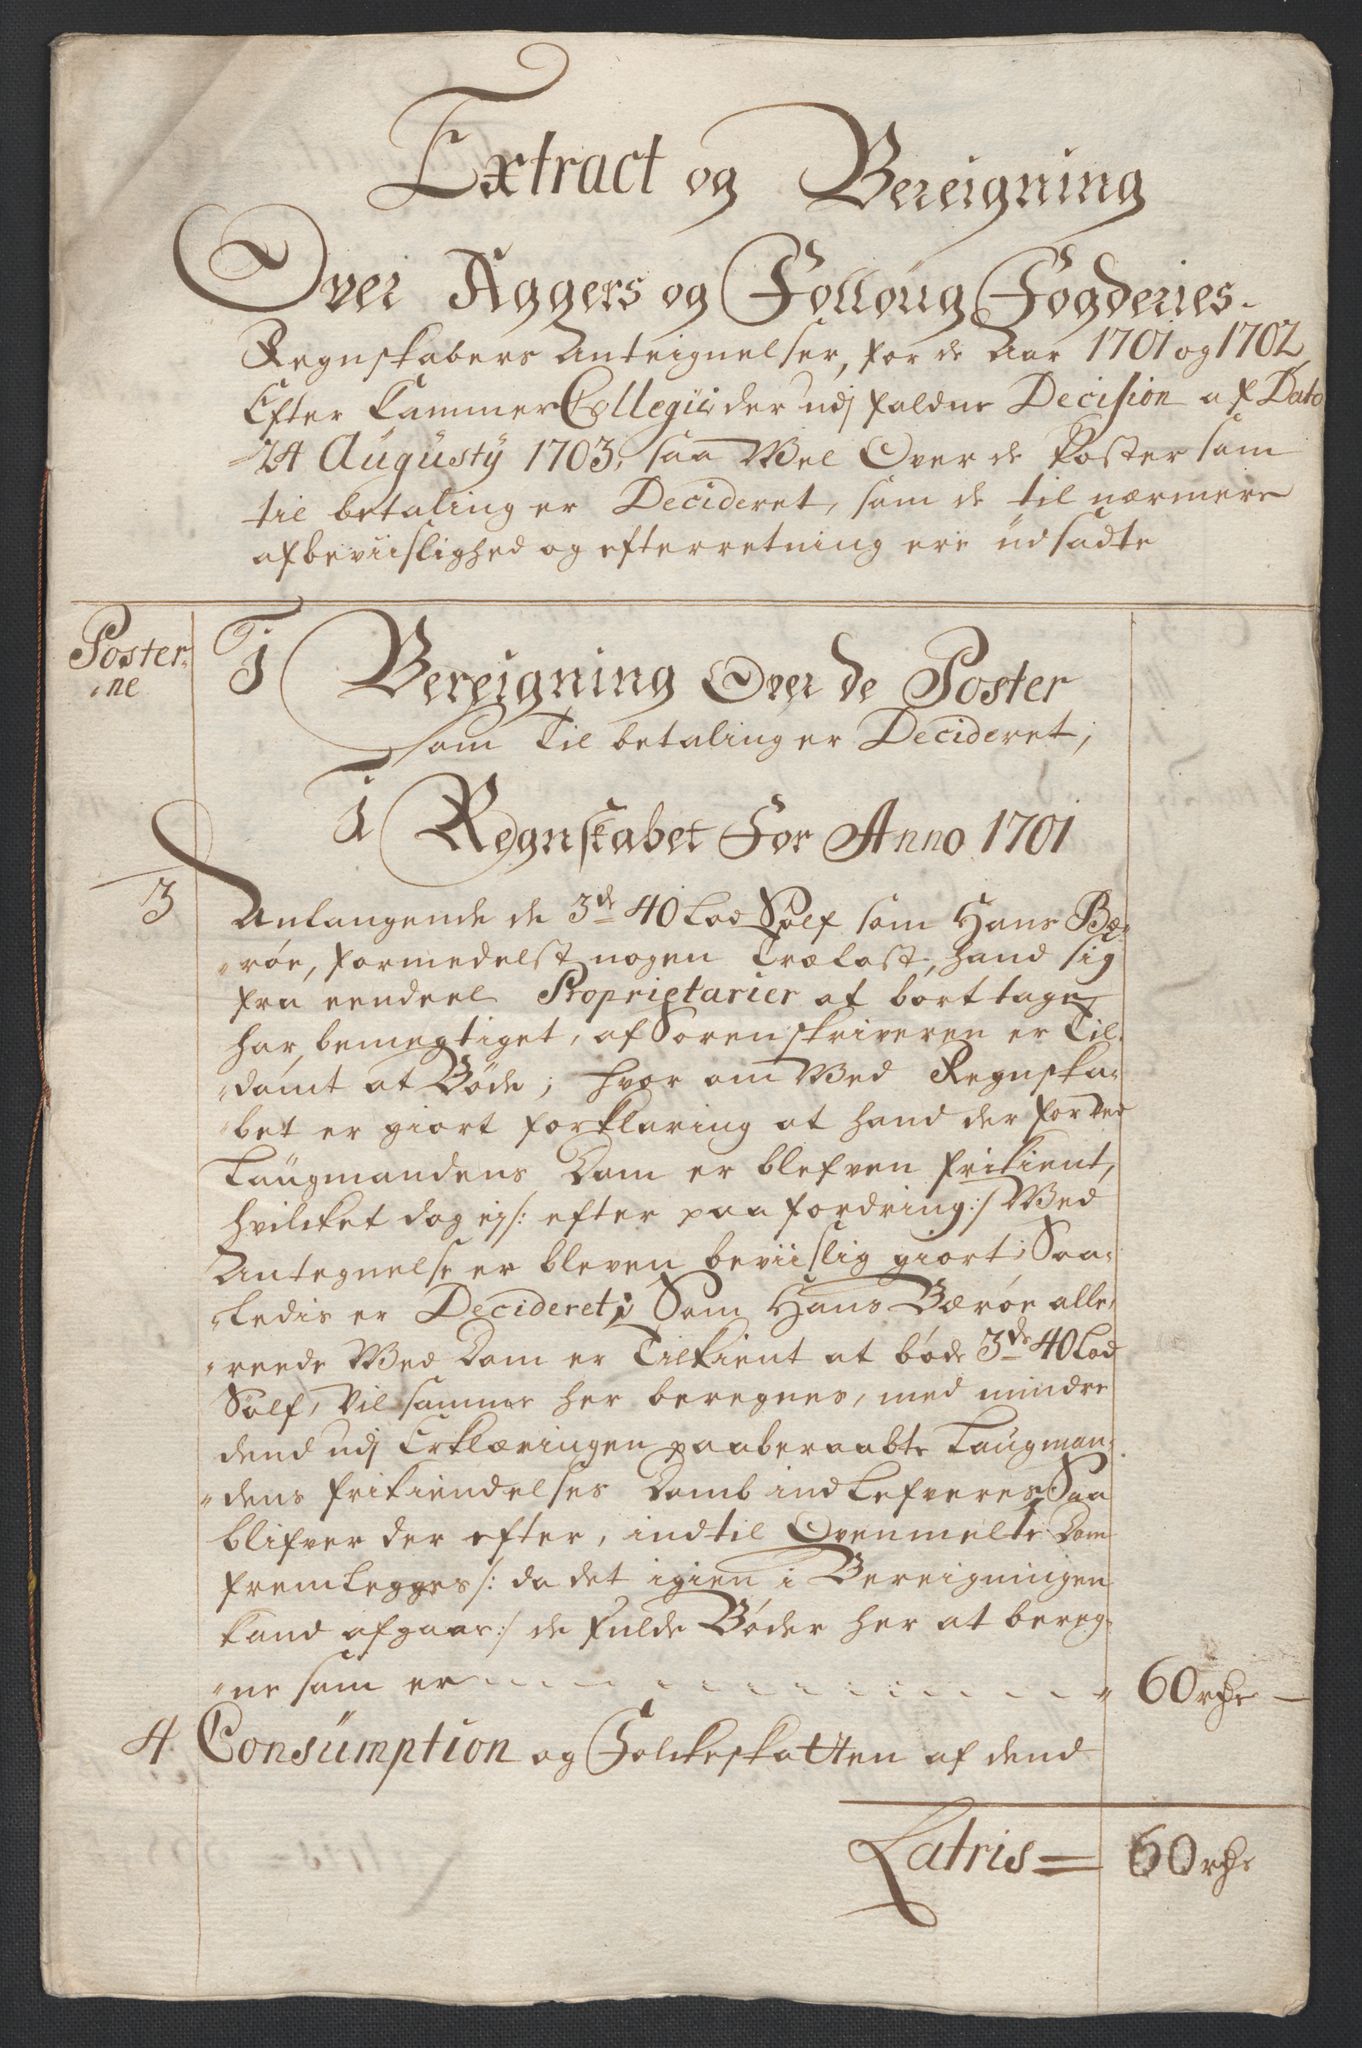 Extract og Bereigning
Over Aggers og Folloug Fogderies
Regnskabers Anteignelser, for de Aar 1701 og 1702
Efter Cammer Collegii der udj faldne Decision af Dato
24 Augusty 1703, saa Wel Over de Poster som
til betaling er Decideret, som de til nærmere
afbeviislighed og efterretning ere udsadte
Poster
ne
I Bereigning Over de Poster
som Til betaling er Decideret,
I Regnskabet For Anno 1701
3 Anlangende de 3de 40 Lod Sølf som Hans Bæ-
røe, formedelst nogen Trælast, hand sig
fra eendeel Proprietarier af bort tage
har bemegtiget, af Sorenskriveren er Til-
dømt at Bøde; hvor om Wed Regnska-
bet er giort forklaring at hand der for Ved
Laugmandens Dom er blefven frikient,
hvilcket dog ej /: efter paafordring :/ Wed
Antegnelse er bleven beviislig giort; Saa-
ledis er Decideret; Som Hans Bærøe alle-
reede Wed Dom er Tilkient at bøde 3de 40 Lod
Sølf, Vil samme her beregnes, med mindre
dend udj Erklæringen paaberaabte Laugman-
dens frikiendelses Domb indlefveres, Saa
blifver der efter, indtil Ovenmelte Dom
fremlegges /: da det igien i Bereigningen
kand afgaae :/ de fulde Bøder her at bereg-
ne som er 60 rdr
4 Consumption og Folckeskatten af dend
Latris = 60 rdr